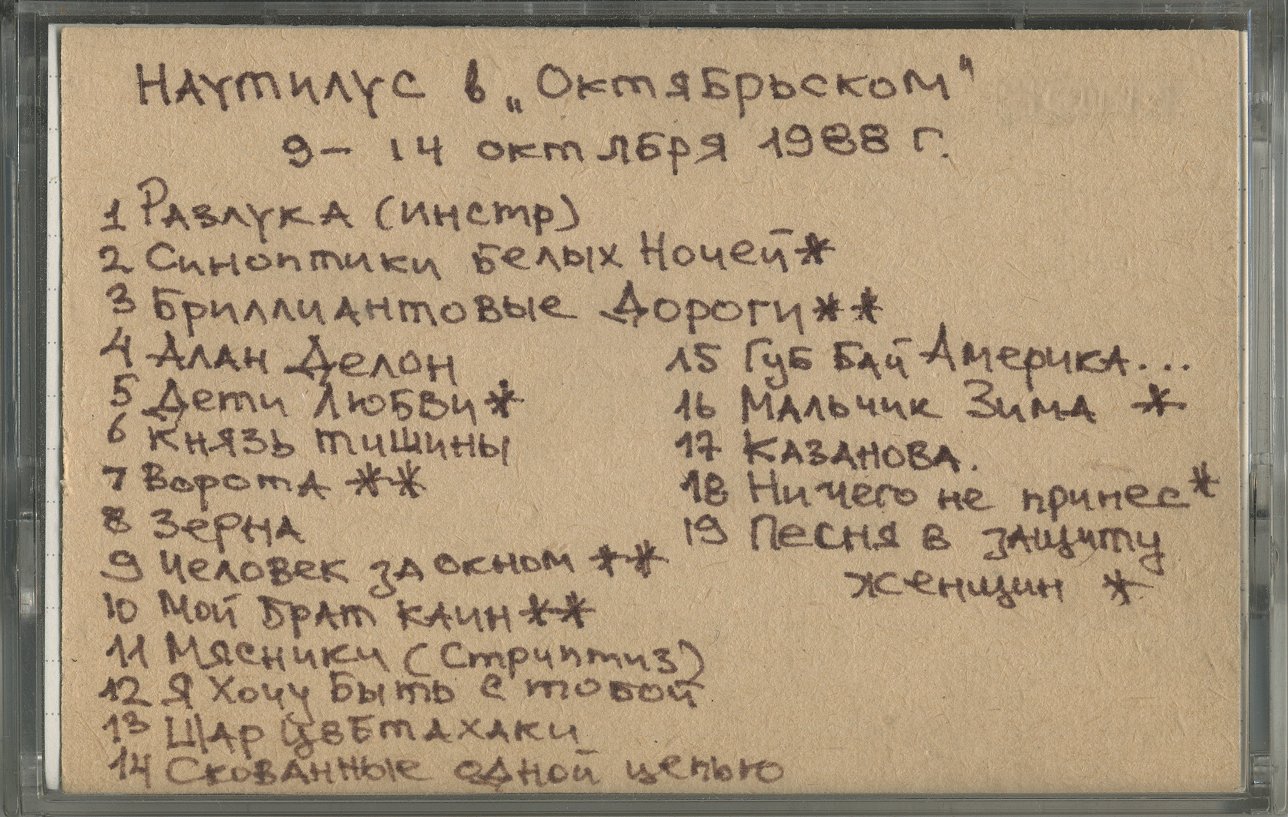 Наутилус в „Октябрьском“
9 – 14 октября 1988 г.
1 Разлука (инстр)
2 Синоптики Белых Ночей *
3 Бриллиантовые Дороги **
4 Алан Делон
5 Дети Любви *
6 Князь тишины
7 Ворота **
8 Зерна
9 Человек за окном **
10 Мой Брат Каин **
11 Мясники (Стриптиз)
12 Я Хочу Быть с тобой
13 Шар цвета хаки
14 Скованные одной цепью
15 Гуд Бай Америка...
16 Мальчик Зима *
17 Казанова.
18 Ничего не принес *
19 Песня в защиту
женщин *